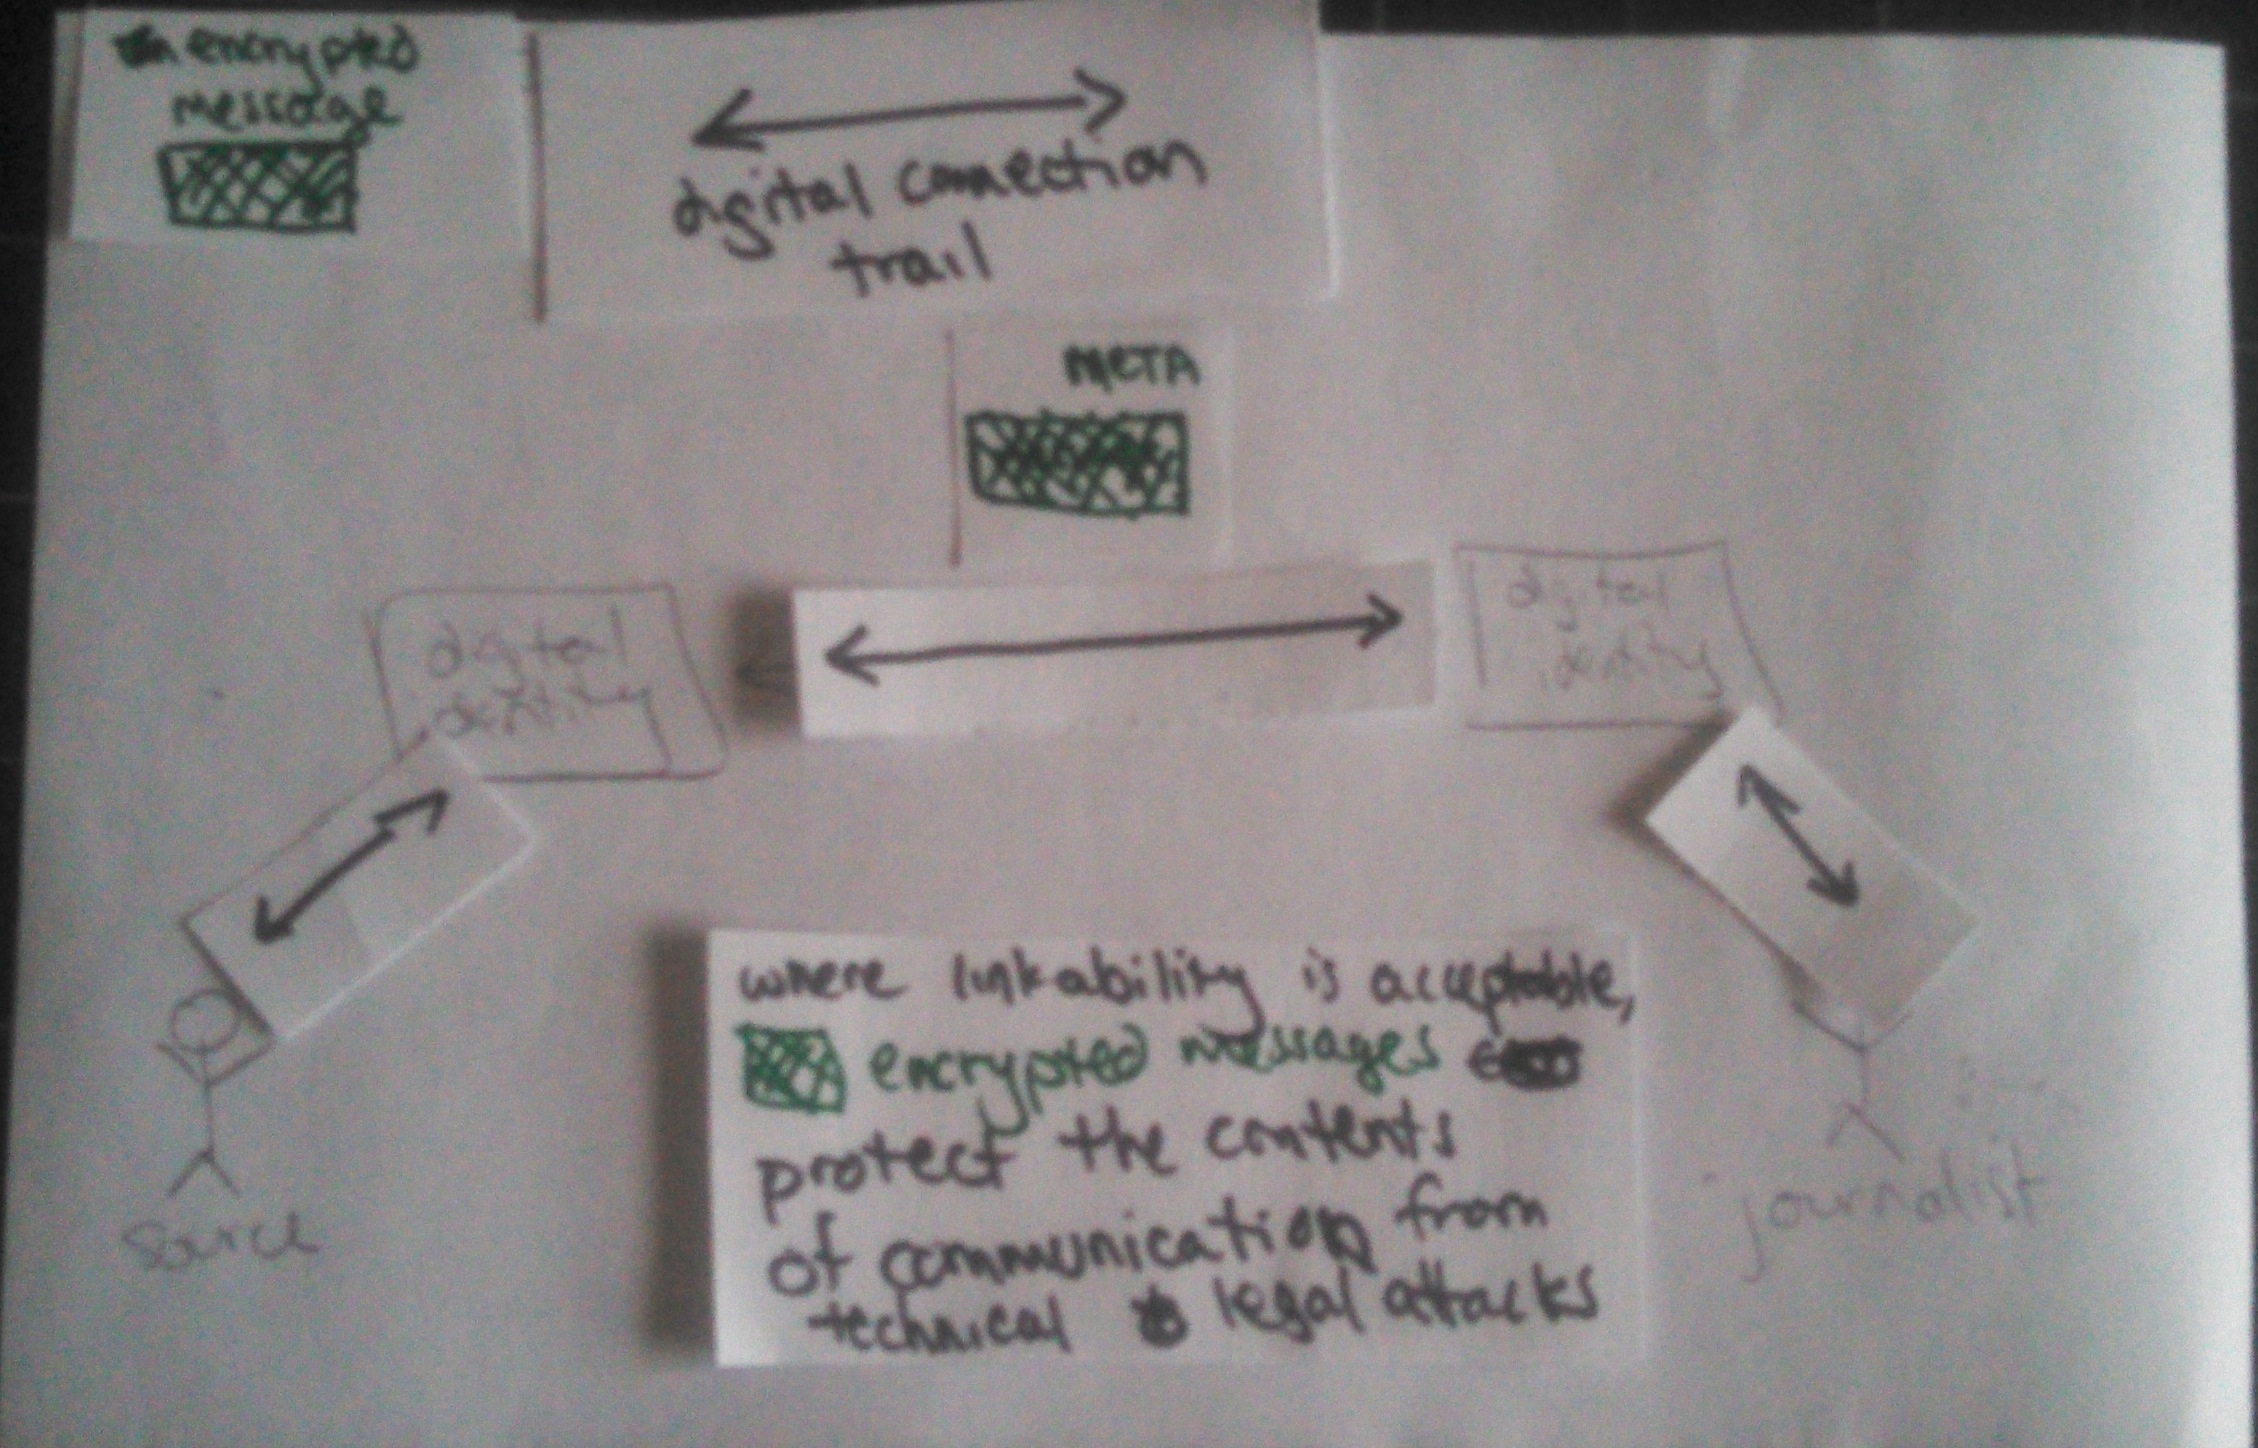 encrypted
message
digital connection
trail
META
digital
identity
digital
identity
where linkability is acceptable,
encrypted messages
protect the contents
of communication from
technical & legal attacks
source
journalist